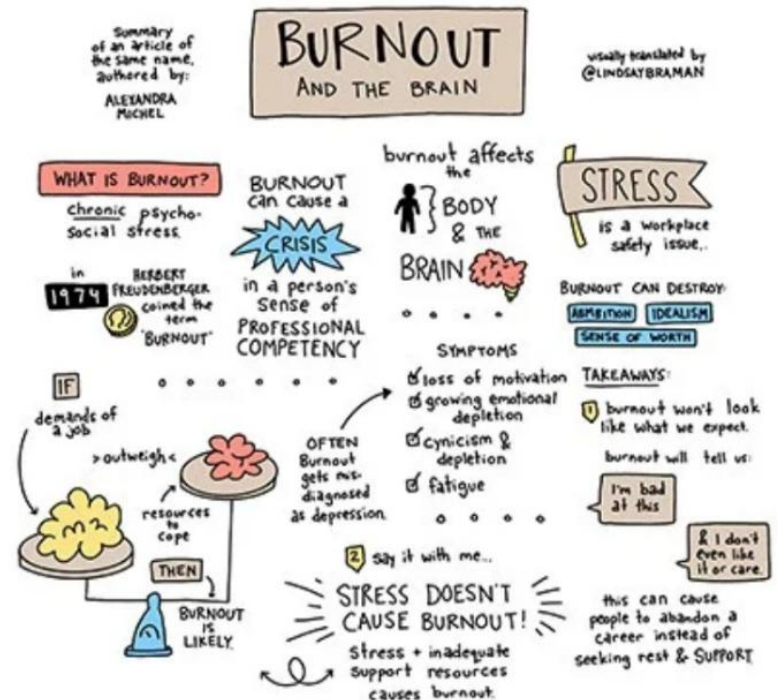 Summary
of an article of
the same name,
authored by:
ALEXANDRA
MICHEL
BURNOUT
AND THE BRAIN
visually translated by
@LINDSAYBRAMAN
WHAT IS BURNOUT?
chronic psycho-
social stress.
in
1974
HERBERT
FREUDENBERGER
coined the
term
"BURNOUT"
BURNOUT
can cause a
CRISIS
in a person's
sense of
PROFESSIONAL
COMPETENCY
burnout affects
the
BODY
& THE
BRAIN
STRESS
is a workplace
safety issue..
BURNOUT CAN DESTROY:
AMBITION
IDEALISM
SENSE OF WORTH
IF
demands of
a job
>outweigh<
resources
to
cope
THEN
BURNOUT
IS
LIKELY.
OFTEN
Burnout
gets mis-
diagnosed
as depression.
SYMPTOMS
loss of motivation
growing emotional
depletion
cynicism &
depletion
fatigue
TAKEAWAYS:
1 burnout won't look
like what we expect.
burnout will tell us:
I'm bad
at this
& I don't
even like
it or care.
this can cause
people to abandon a
career instead of
seeking rest & SUPPORT
2 say it with me...
STRESS DOESN'T
CAUSE BURNOUT!
Stress + inadequate
support resources
causes burnout.